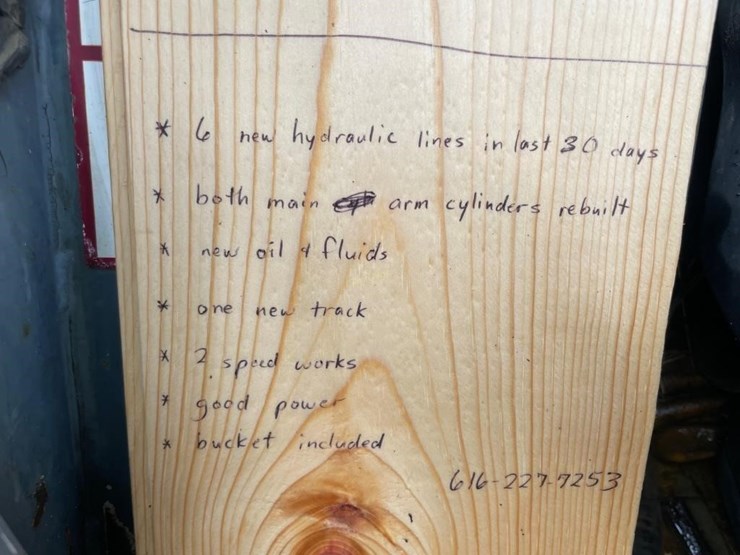 * 6 new hydraulic lines in last 30 days
* both main arm cylinders rebuilt
* new oil & fluids
* one new track
* 2 speed works
* good power
* bucket included
616-227-7253